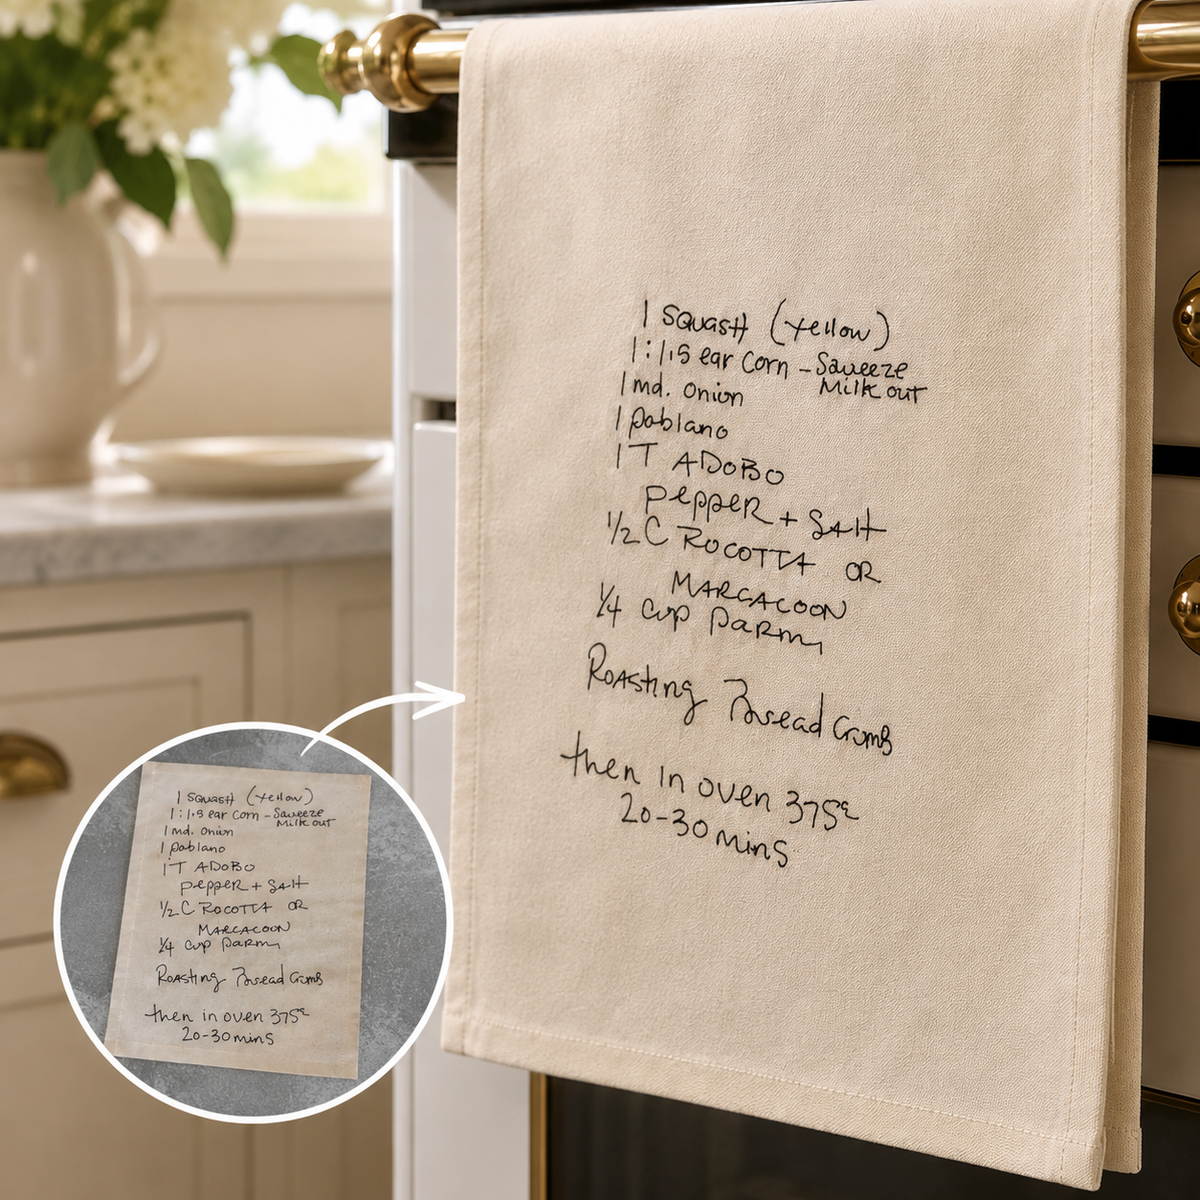 1 SQUASH (Yellow)
1:1.5 ear Corn - Squeeze
Milk out
1 md. Onion
1 poblano
1 T ADOBO
PEPPER + SALT
1/2 C ROCOTTA OR
MARCACOON
1/4 cup Parm
ROASting Bread Crumb
then in oven 375°
20-30 mins
1 SQUASH (Yellow)
1:1.5 ear Corn - Squeeze
Milk out
1 md. Onion
1 poblano
1 T ADOBO
PEPPER + SALT
1/2 C ROCOTTA OR
MARCACOON
1/4 cup Parm
ROASting Bread Crumb
then in oven 375°
20-30 mins